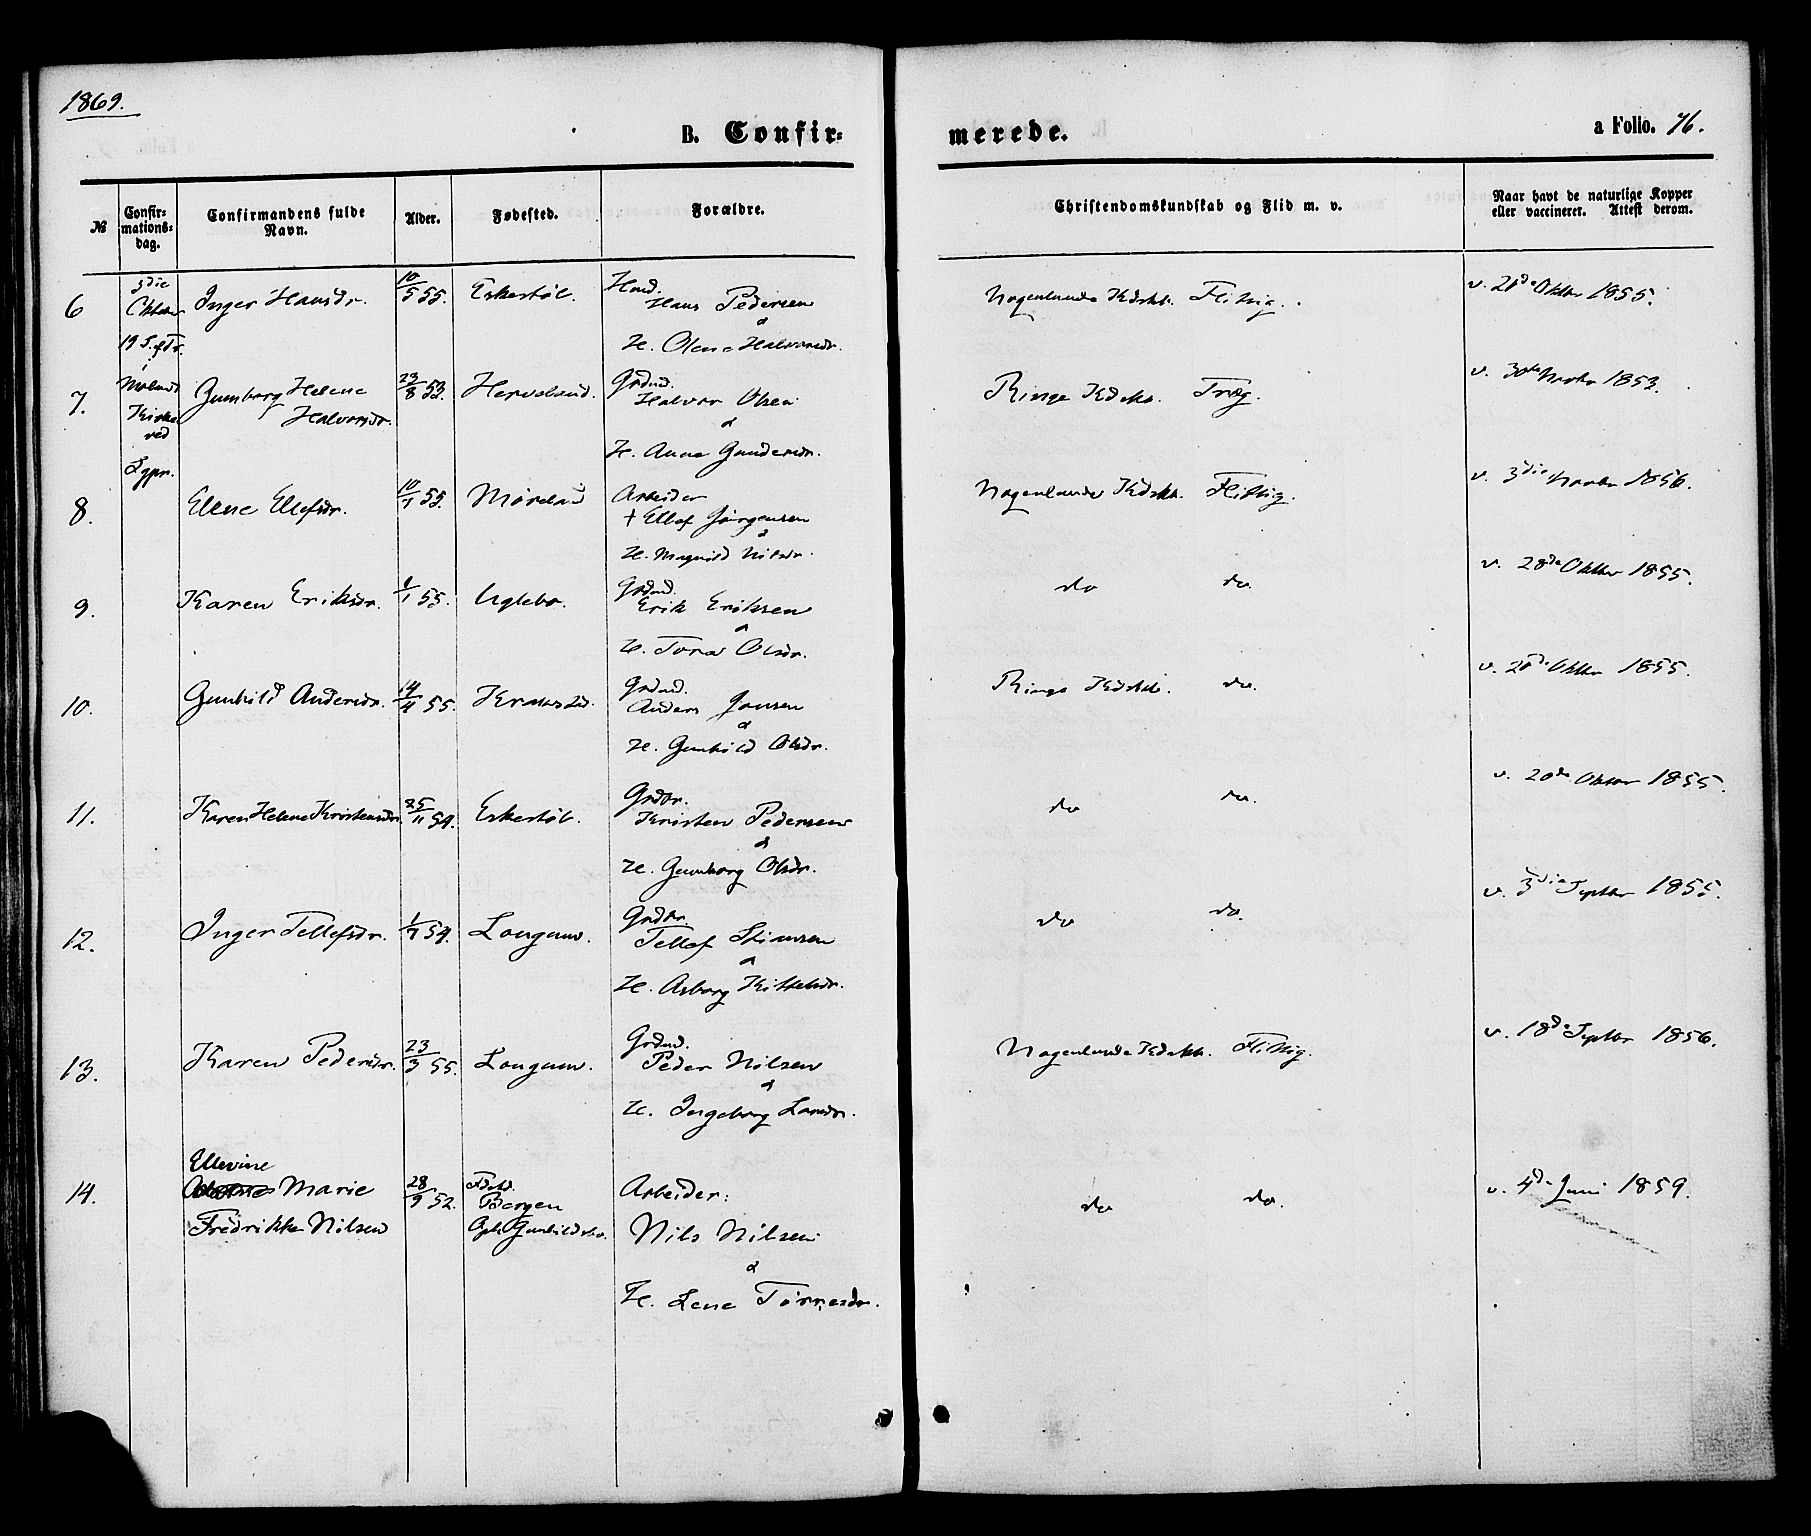 1869.
B. Confir=
merede.
a Folio. 76.
№
Confir=
mations=
dag.
Confirmandens fulde
Navn.
Alder.
Fødested.
Forældre.
Christendomskundskab og Flid m. v.
Naar havt de naturlige Kopper
eller vaccineret. Attest derom.
3die
Oktober
19 S. e. Tr.
i
Kirke
ved
Sgpr.
6 Inger Hansdr. 10/5 55. Eskestøl. Hans Pedersen
&
H. Olene Halvorsdr.
Nogenlunde Kdsk. Flittig. v. 20de Oktbr 1855.
7. Gunborg Helene
Halvorsdr.
23/8 53. Grdmd.
Halvor Olsen
&
H. Anne Gundersdr.
Ringe Kdsk. Træg. v. 30te Novbr 1853.
8. Elene Ellefsdr. 10/1 55. Møreland Arbeider
† Ellef Jørgensen
&
H. Magnild Nilsdr.
Nogenlunde Kdsk. Flittig. v. 3die Novbr 1856.
9. Karen Eriksdr. 1/1 55. Uglebo. Grdmd.
Erik Eriksen
&
H. Tora Olsdr.
do do. v. 28de Oktbr 1855.
10. Gunhild Andersdr. 14/4 55. Grdmd.
Anders Jensen
&
H. Gunhild Olsdr.
Ringe Kdsk. do. v. 20de Oktbr 1855.
11. Karen Helene Kristensdr. 25/11 54. Eskestøl. Grdbr.
Kristen Pedersen
&
H. Gunborg Olsdr.
do do. v. 20de Oktbr 1855.
12. Inger Tellefsdr. 1/7 54. Longum. Grdbr.
Tellef Stiansen
&
H. Asborg Kittelsdr.
do do. v. 3die Septbr 1855.
13. Karen Pedersdr. 23/3 55. Longum. Grdmd.
Peder Nilsen
&
H. Ingeborg Larsdr.
Nogenlunde Kdsk. Flittig. v. 18de Septbr 1856.
Ellevine
14. Marie
Fredrikke Nilsen
28/9 52. Fødd.
Bergen
Oph. Gunhildsbo.
Arbeider:
Nils Nilsen
&
H. Lene Tørresdr.
do do. v. 4de Juni 1859.